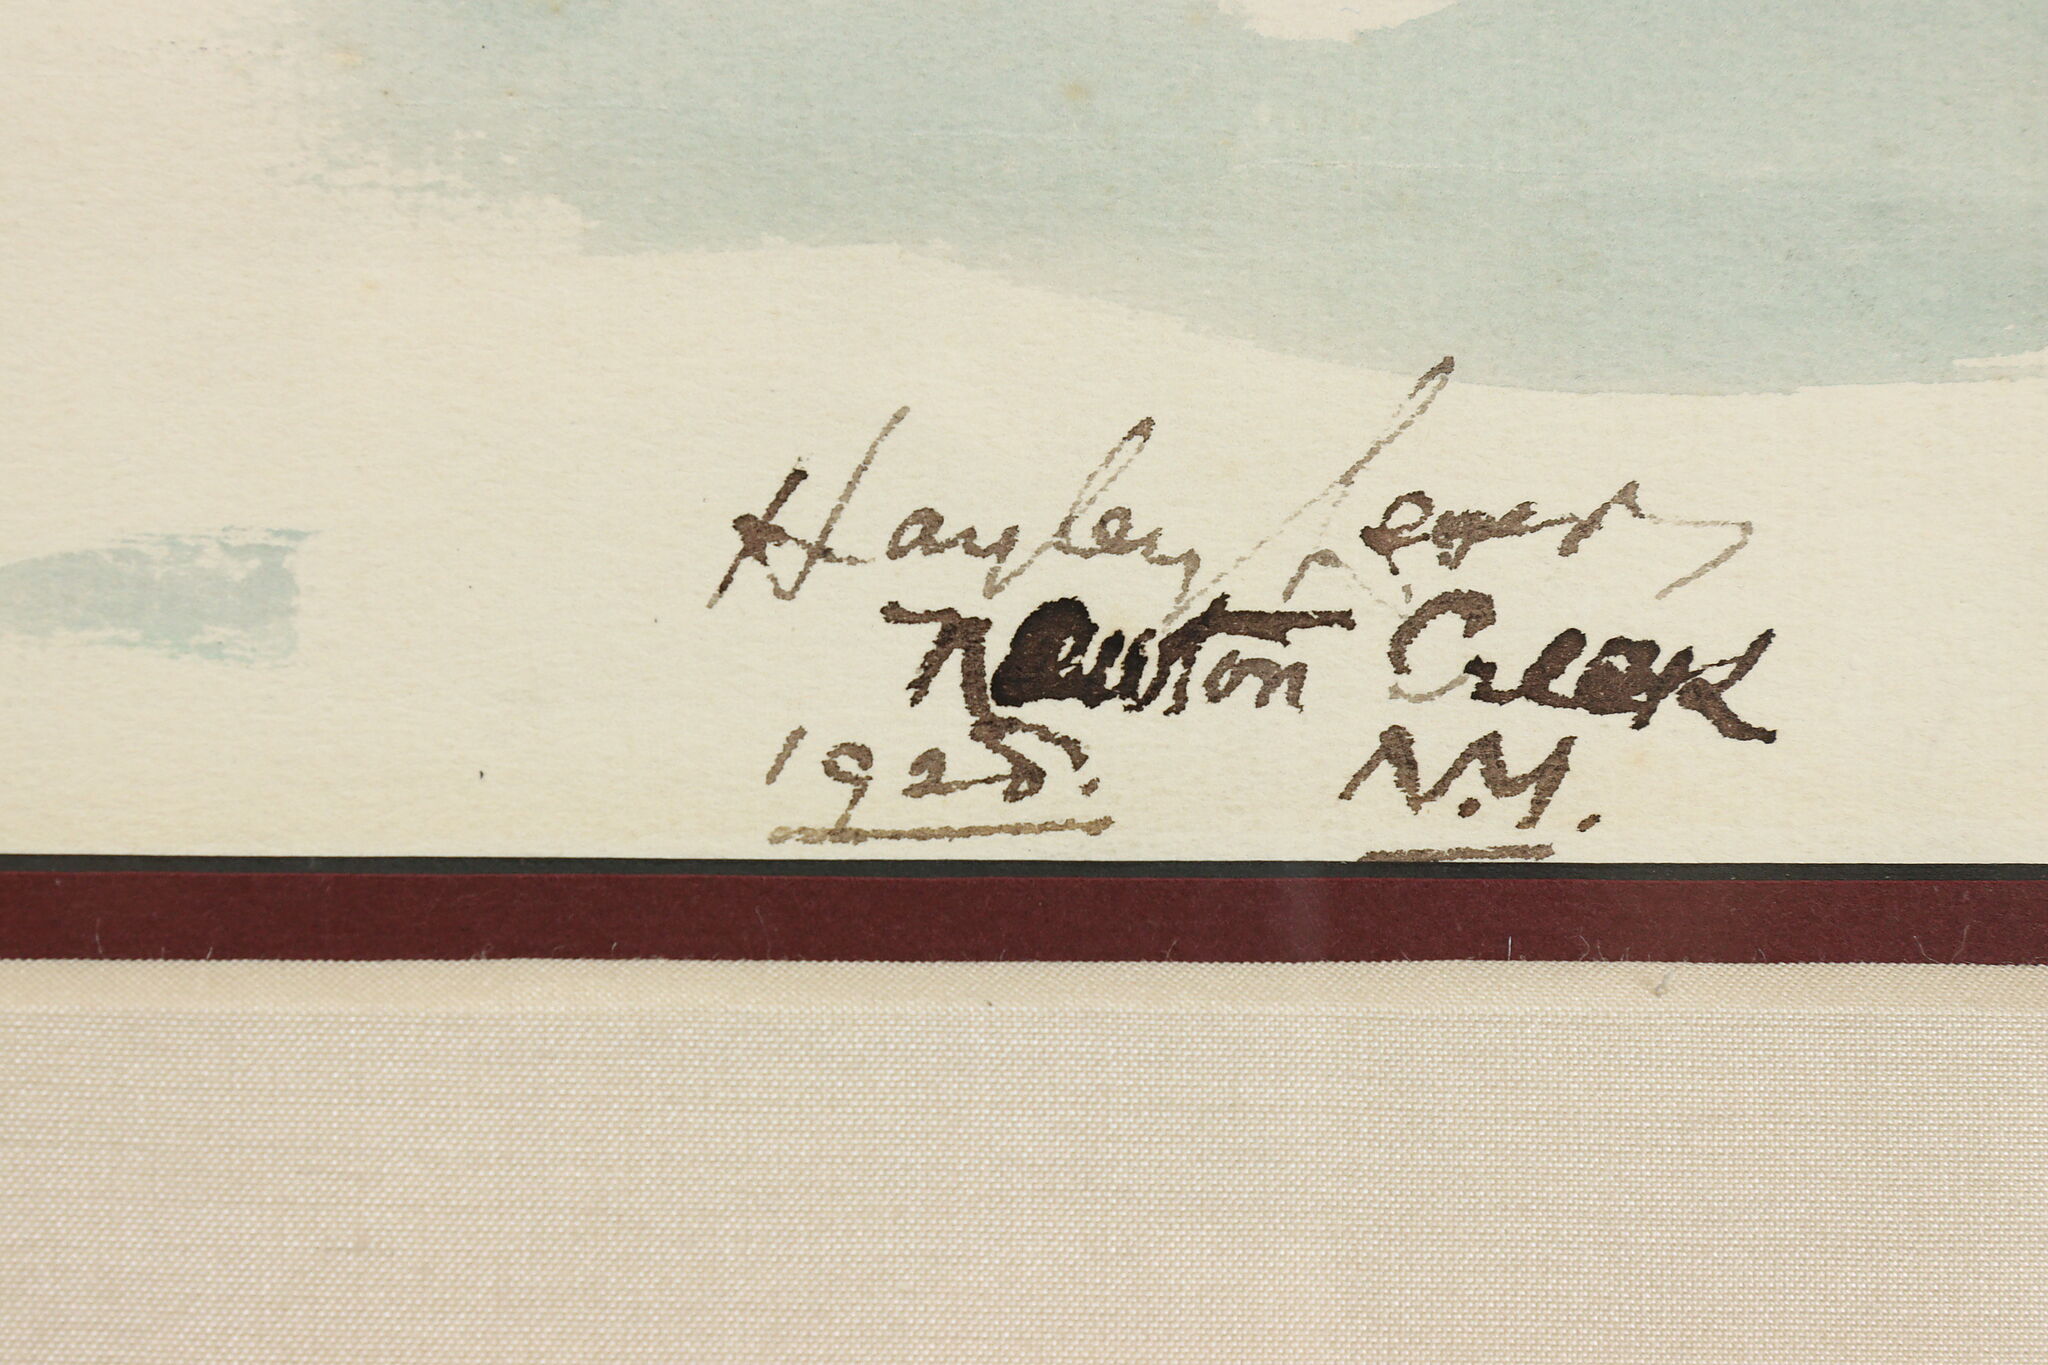 Hayley Lever
Newton Creek
1925. N.Y.